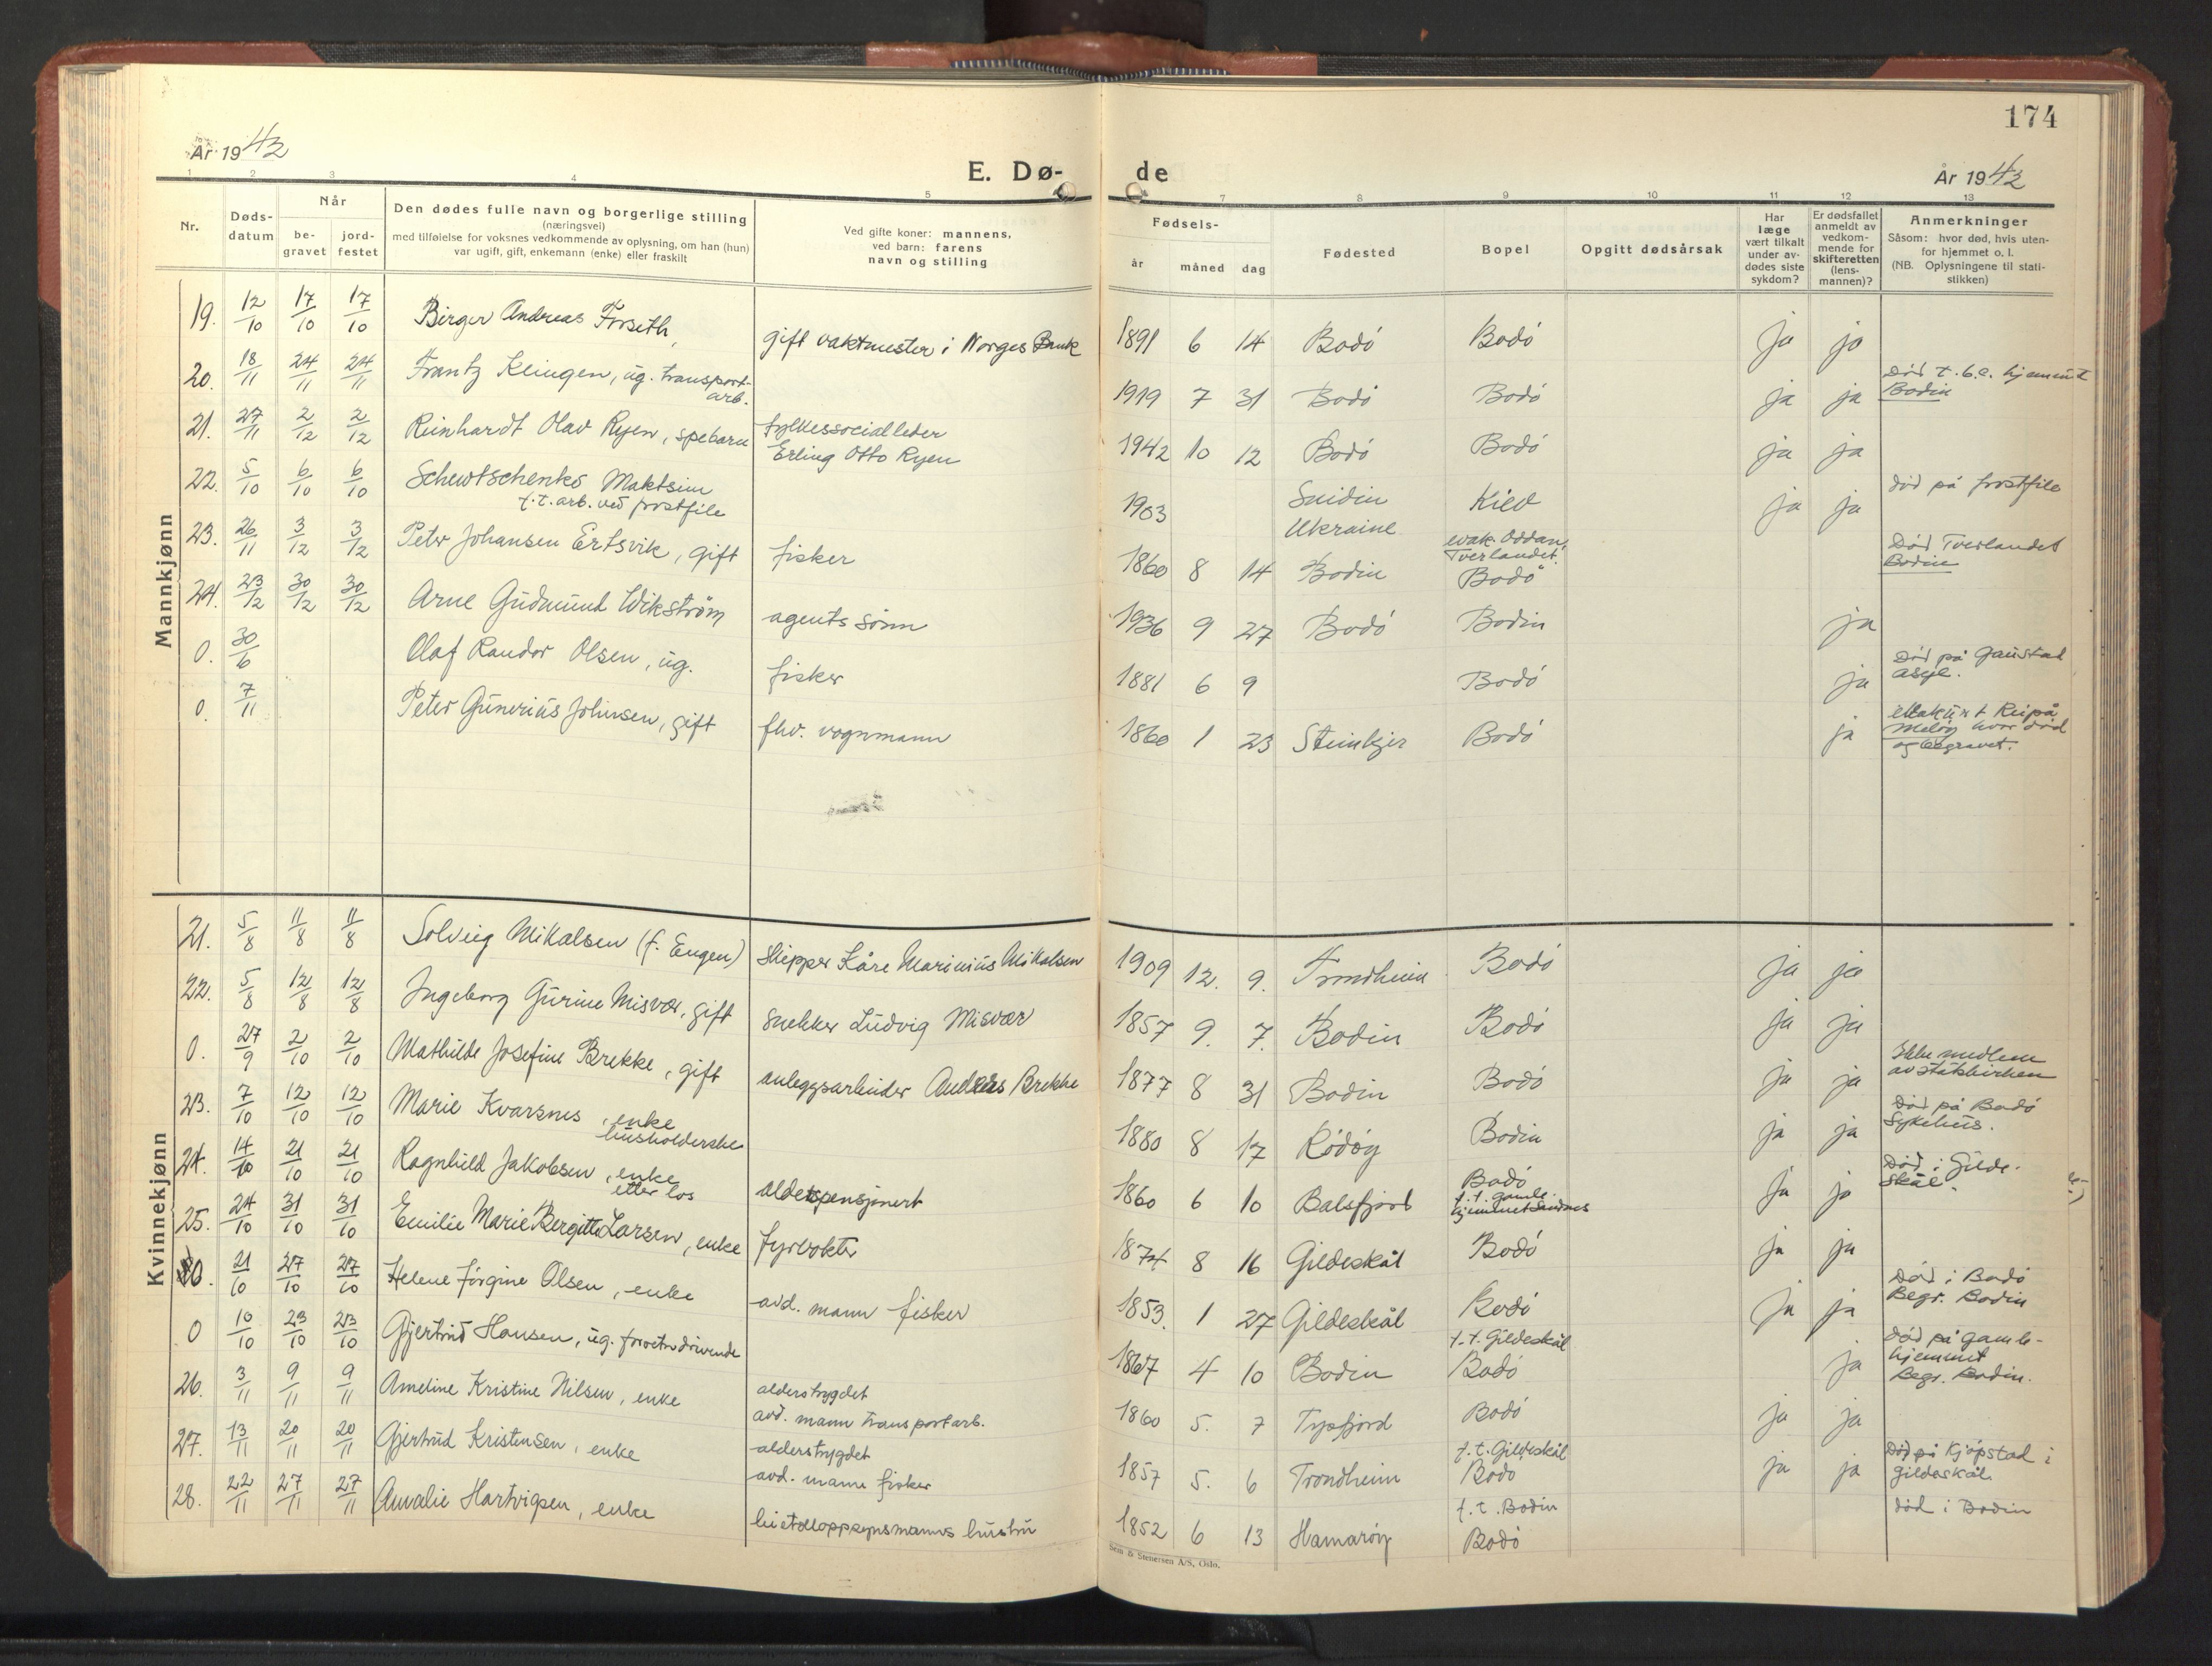 174
År 1942
E. Dø-
de
År 1942
1 2 3 4 5 6 7 8 9 10 11 12 13
Nr.
Døds-
datum
Når
be-
gravet
jord-
festet
Den dødes fulle navn og borgerlige stilling
(næringsvei)
med tilføielse for voksnes vedkommende av oplysning, om han (hun)
var ugift, gift, enkemann (enke) eller fraskilt
Ved gifte koner: mannens,
ved barn: farens
navn og stilling
Fødsels-
år måned dag
Fødested
Bopel
Opgitt dødsårsak
Har
læge
vært tilkalt
under av-
dødes siste
sykdom?
Er dødsfallet
anmeldt av
vedkom-
mende for
skifteretten
(lens-
mannen)?
Anmerkninger
Såsom: hvor død, hvis uten-
for hjemmet o. l.
(NB. Oplysningene til stati-
stikken)
Mannkjønn
19. 12/10 17/10 17/10 Birger Andreas Forseth, gift vaktmester i Norges Bank 1891 6 14 Bodö Bodö ja ja
20. 18/11 24/11 24/11 Frantz Klingen, ug. transport-
arb. 1919 7 31 Bodö Bodö ja ja Död t.b.c. hjemmet
Bodin
21. 27/11 2/12 2/12 Reinhardt Olav Ryen, spebarn fylkessocialleder
Erling Otto Ryen 1942 10 12 Bodö Bodö ja ja
22. 5/10 6/10 6/10 Schewtschenko Maktsim
f.t. arb. ved frostfile 1903 Snidin
Ukraine Kiev ja ja död på frostfile
23. 26/11 3/12 3/12 Peter Johansen Ertsvik, gift fisker 1860 8 14 Bodin evak. Oddan,
Tverlandet.
Bodö Död Tverlandet
Bodin
24. 23/12 30/12 30/12 Arne Gudmund Wikström agents sönn 1936 9 27 Bodö Bodin ja
0. 30/6 Olaf Randor Olsen, ug. fisker 1881 6 9 Bodö ja Död på Gaustad
asyl.
0. 7/11 Peter Gunerius Johnsen, gift fhv. vognmann 1860 1 23 Steinkjer Bodö ja evakuert Reipå
Melöy hvor död
og begravet.
Kvinnekjønn
21. 5/8 11/8 11/8 Solveig Mikalsen (f. Eugen) Skipper Kåre Marinius Mikalsen 1909 12. 9. Trondheim Bodö ja ja
22. 5/8 12/8 12/8 Ingeborg Gurine Misvær, gift snekker Ludvig Misvær 1857 9. 7. Bodin Bodö ja ja
0. 27/9 2/10 2/10 Mathilde Josefine Brekke, gift anleggsarbeider Andreas Brekke 1877 8 31 Bodin Bodö ja ja Ikke medlem
av statskirken
23. 7/10 12/10 12/10 Marie Kvarsnes, enke
husholderske 1880 8 17 Rödöy Bodin ja ja Död på Bodö
Sykehus.
24. 14/10 21/10 21/10 Ragnhild Jakobsen, enke
etter los alderspensjonert 1860 6 10 Balsfjord Bodö
f.t. gamle-
hjemmet Sandnes ja ja Död i Gilde-
skål.
25. 24/10 31/10 31/10 Emilie Marie Bergitte Larsen, enke fyrvokter 1874 8 16 Gildeskål Bodö ja ja
0. 21/10 27/10 27/10 Helene Jörgine Olsen, enke avd. mann fisker 1853. 1 27 Gildeskål Bodö ja ja Död i Bodö
Begr. Bodin
0 10/10 23/10 23/10 Gjertrud Hansen, ug. forretn.drivende 1867 4 10 Bodin f.t. Gildeskål
Bodö ja död på gamle-
hjemmet
Begr. Bodin.
26. 3/11 9/11 9/11 Ameline Kristine Nilsen, enke alderstrygdet
avd. mann transportarb. 1860 5. 7 Tysfjord Bodö ja ja
27. 13/11 20/11 20/11 Gjertrud Kristensen, enke alderstrygdet
avd. mann fisker 1857 5. 6 Trondheim f.t. Gildeskål
Bodö ja ja Död på Kjöpstad i
Gildeskål.
28. 22/11 27/11 27/11 Amalie Hartvigsen, enke hustru 1852 6 13 Hamaröy f.t. Bodin
Bodö död i Bodin
Sem & Stenersen A/S, Oslo.